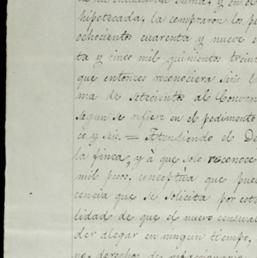 hipotecada, la compraron los p
ochocientos cuarenta y nueve e
ta y cinco mil quinientos trein
que entonces reconociera seis
ma de setecientos al Conven
segun se refiere en el pedimento
ce y seis. = Atendiendo el De
la finca, y à que solo reconoce
mil pesos, conceptúa que pue
cencia que se solicita por est
lidad de que el nuevo censual
der alegar en ningun tiempo,
derechos de